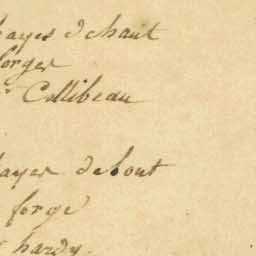 hayes dehaut
forges
Collibeau
hayes debout
forge
hardy.